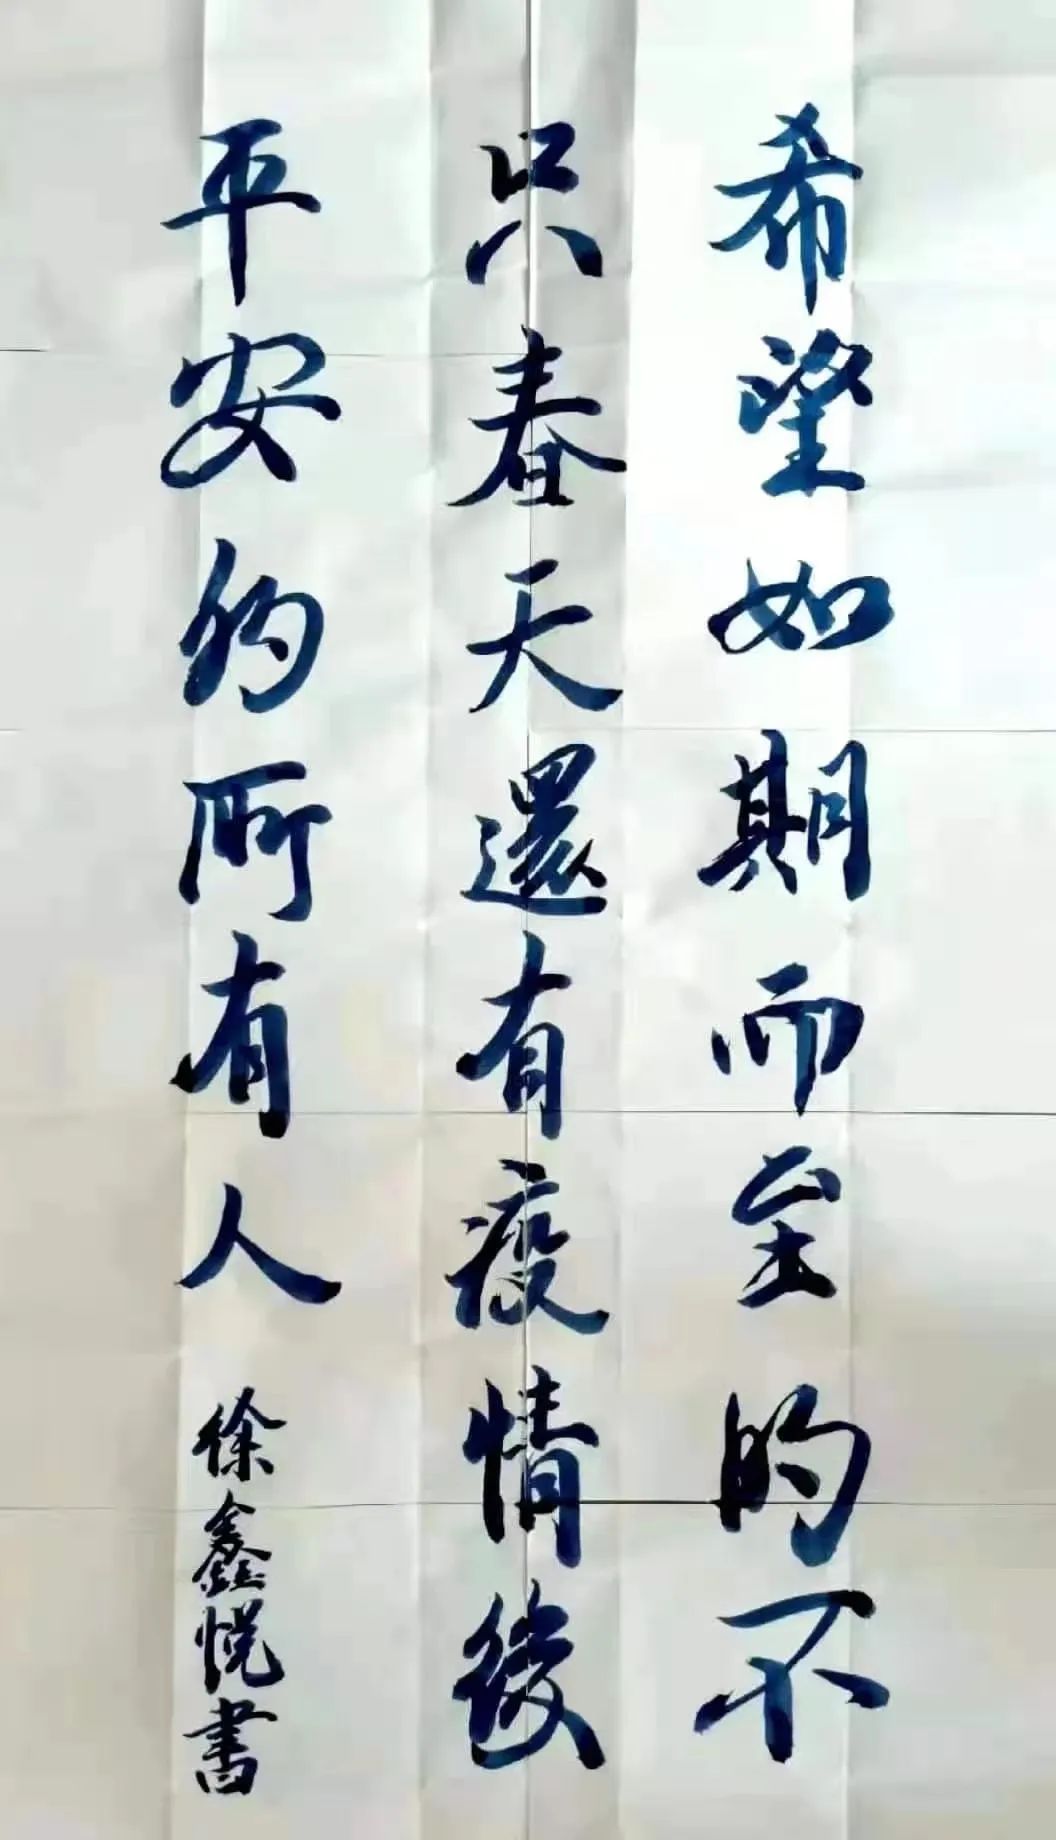 希望如期而至的不
只春天還有疫情後
平安的所有人
徐鑫悦書